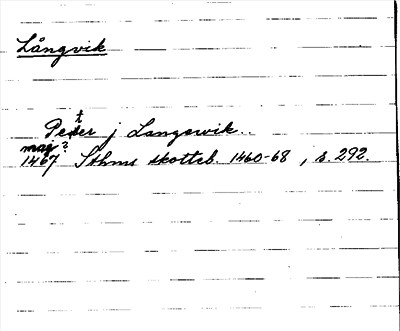 Långvik
Peter j Langawik..
maj ?
1467 Sthms skotteb. 1460-68, s. 292.